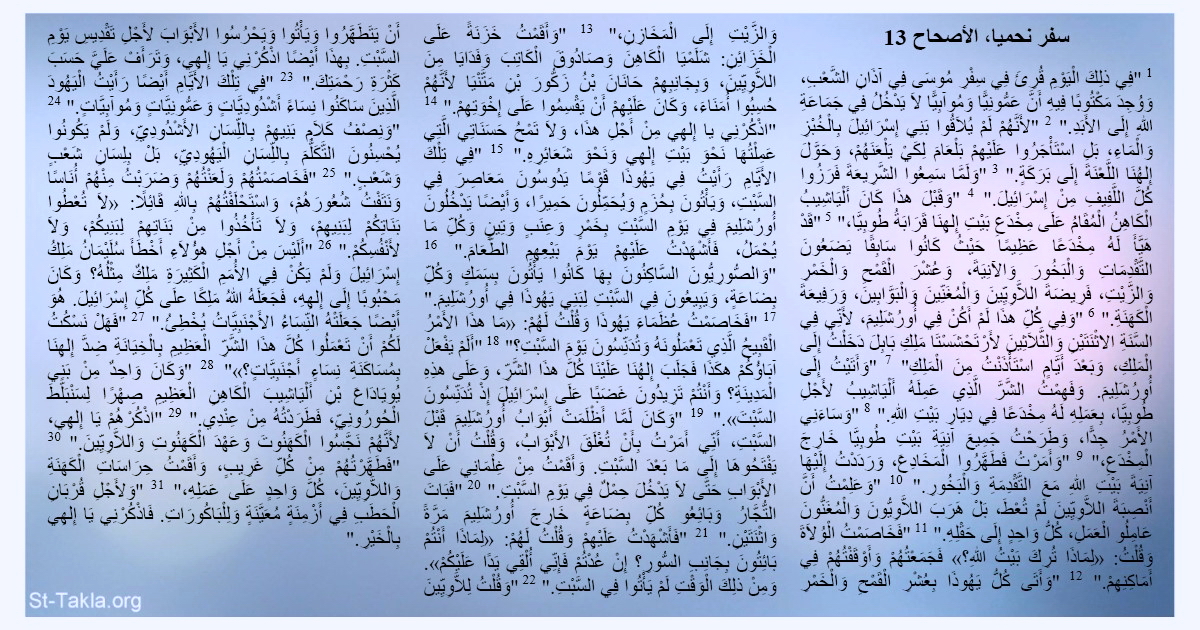 سفر نحميا، الأصحاح 13
1 "فِي ذلِكَ الْيَوْمِ قُرِئَ فِي سِفْرِ مُوسَى فِي آذَانِ الشَّعْبِ،
وَوُجِدَ مَكْتُوبًا فِيهِ أَنَّ عَمُّونِيًّا وَمُوآبِيًّا لاَ يَدْخُلُ فِي جَمَاعَةِ
اللهِ إِلَى الأَبَدِ." 2 "لأَنَّهُمْ لَمْ يُلاَقُوا بَنِي إِسْرَائِيلَ بِالْخُبْزِ
وَالْمَاءِ، بَلِ اسْتَأْجَرُوا عَلَيْهِمْ بَلْعَامَ لِكَيْ يَلْعَنَهُمْ، وَحَوَّلَ
إِلهُنَا اللَّعْنَةَ إِلَى بَرَكَةٍ." 3 "وَلَمَّا سَمِعُوا الشَّرِيعَةَ فَرَزُوا
كُلَّ اللَّفِيفِ مِنْ إِسْرَائِيلَ." 4 "وَقَبْلَ هذَا كَانَ أَلْيَاشِيبُ
الْكَاهِنُ الْمُقَامُ عَلَى مِخْدَعِ بَيْتِ إِلهِنَا قَرَابَةُ طُوبِيَّا،" 5 "قَدْ
هَيَّأَ لَهُ مِخْدَعًا عَظِيمًا حَيْثُ كَانُوا سَابِقًا يَضَعُونَ
التَّقْدِمَاتِ وَالْبَخُورَ وَالآنِيَةَ، وَعُشْرَ الْقَمْحِ وَالْخَمْرِ
وَالزَّيْتِ، فَرِيضَةَ اللاَّوِيِّينَ وَالْمُغَنِّينَ وَالْبَوَّابِينَ، وَرَفِيعَةَ
الْكَهَنَةِ." 6 "وَفِي كُلِّ هذَا لَمْ أَكُنْ فِي أُورُشَلِيمَ، لأَنِّي فِي
السَّنَةِ الاثْنَتَيْنِ وَالثَّلاَثِينَ لأَرْتَحْشَسْتَا مَلِكِ بَابِلَ دَخَلْتُ إِلَى
الْمَلِكِ، وَبَعْدَ أَيَّامٍ اسْتَأْذَنْتُ مِنَ الْمَلِكِ" 7 "وَأَتَيْتُ إِلَى
أُورُشَلِيمَ. وَفَهِمْتُ الشَّرَّ الَّذِي عَمِلَهُ أَلْيَاشِيبُ لأَجْلِ
طُوبِيَّا، بِعَمَلِهِ لَهُ مِخْدَعًا فِي دِيَارِ بَيْتِ اللهِ." 8 "وَسَاءَنِي
الأَمْرُ جِدًّا، وَطَرَحْتُ جَمِيعَ آنِيَةِ بَيْتِ طُوبِيَّا خَارِجَ
الْمِخْدَعِ،" 9 "وَأَمَرْتُ فَطَهَّرُوا الْمَخَادِعَ، وَرَدَدْتُ إِلَيْهَا
آنِيَةَ بَيْتِ اللهِ مَعَ التَّقْدِمَةِ وَالْبَخُورِ." 10 "وَعَلِمْتُ أَنَّ
أَنْصِبَةَ اللاَّوِيِّينَ لَمْ تُعْطَ، بَلْ هَرَبَ اللاَّوِيُّونَ وَالْمُغَنُّونَ
عَامِلُو الْعَمَلِ، كُلُّ وَاحِدٍ إِلَى حَقْلِهِ." 11 "فَخَاصَمْتُ الْوُلاَةَ
وَقُلْتُ: «لِمَاذَا تُرِكَ بَيْتُ اللهِ؟» فَجَمَعْتُهُمْ وَأَوْقَفْتُهُمْ فِي
أَمَاكِنِهِمْ." 12 "وَأَتَى كُلُّ يَهُوذَا بِعُشْرِ الْقَمْحِ وَالْخَمْرِ
وَالزَّيْتِ إِلَى الْمَخَازِنِ،" 13 "وَأَقَمْتُ خَزَنَةً عَلَى
الْخَزَائِنِ: شَلَمْيَا الْكَاهِنَ وَصَادُوقَ الْكَاتِبَ وَفَدَايَا مِنَ
اللاَّوِيِّينَ، وَبِجَانِبِهِمْ حَانَانَ بْنُ زَكُّورَ بْنِ مَتَّنْيَا لأَنَّهُمْ
حُسِبُوا أُمَنَاءَ، وَكَانَ عَلَيْهِمْ أَنْ يَقْسِمُوا عَلَى إِخْوَتِهِمْ." 14
"اذْكُرْنِي يَا إِلهِي مِنْ أَجْلِ هذَا، وَلاَ تَمْحُ حَسَنَاتِي الَّتِي
عَمِلْتُهَا نَحْوَ بَيْتِ إِلهِي وَنَحْوَ شَعَائِرِهِ." 15 "فِي تِلْكَ
الأَيَّامِ رَأَيْتُ فِي يَهُوذَا قَوْمًا يَدُوسُونَ مَعَاصِرَ فِي
السَّبْتِ، وَيَأْتُونَ بِحُزَمٍ وَيُحَمِّلُونَ حَمِيرًا، وَأَيْضًا يَدْخُلُونَ
أُورُشَلِيمَ فِي يَوْمِ السَّبْتِ بِخَمْرٍ وَعِنَبٍ وَتِينٍ وَكُلِّ مَا
يُحْمَلُ، فَأَشْهَدْتُ عَلَيْهِمْ يَوْمَ بَيْعِهِمِ الطَّعَامَ." 16
"وَالصُّورِيُّونَ السَّاكِنُونَ بِهَا كَانُوا يَأْتُونَ بِسَمَكٍ وَكُلِّ
بِضَاعَةٍ، وَيَبِيعُونَ فِي السَّبْتِ لِبَنِي يَهُوذَا فِي أُورُشَلِيمَ."
17 "فَخَاصَمْتُ عُظَمَاءَ يَهُوذَا وَقُلْتُ لَهُمْ: «مَا هذَا الأَمْرُ
الْقَبِيحُ الَّذِي تَعْمَلُونَهُ وَتُدَنِّسُونَ يَوْمَ السَّبْتِ؟" 18 "أَلَمْ يَفْعَلْ
آبَاؤُكُمْ هكَذَا فَجَلَبَ إِلهُنَا عَلَيْنَا كُلَّ هذَا الشَّرِّ، وَعَلَى هذِهِ
الْمَدِينَةِ؟ وَأَنْتُمْ تَزِيدُونَ غَضَبًا عَلَى إِسْرَائِيلَ إِذْ تُدَنِّسُونَ
السَّبْتَ»." 19 "وَكَانَ لَمَّا أَظْلَمَتْ أَبْوَابُ أُورُشَلِيمَ قَبْلَ
السَّبْتِ، أَنِّي أَمَرْتُ بِأَنْ تُغْلَقَ الأَبْوَابُ، وَقُلْتُ أَنْ لاَ
يَفْتَحُوهَا إِلَى مَا بَعْدَ السَّبْتِ. وَأَقَمْتُ مِنْ غِلْمَانِي عَلَى
الأَبْوَابِ حَتَّى لاَ يَدْخُلَ حِمْلٌ فِي يَوْمِ السَّبْتِ." 20 "فَبَاتَ
التُّجَّارُ وَبَائِعُو كُلِّ بِضَاعَةٍ خَارِجَ أُورُشَلِيمَ مَرَّةً
وَاثْنَتَيْنِ." 21 "فَأَشْهَدْتُ عَلَيْهِمْ وَقُلْتُ لَهُمْ: «لِمَاذَا أَنْتُمْ
بَائِتُونَ بِجَانِبِ السُّورِ؟ إِنْ عُدْتُمْ فَإِنِّي أُلْقِي يَدًا عَلَيْكُمْ».
وَمِنْ ذلِكَ الْوَقْتِ لَمْ يَأْتُوا فِي السَّبْتِ." 22 "وَقُلْتُ لِلاَّوِيِّينَ
أَنْ يَتَطَهَّرُوا وَيَأْتُوا وَيَحْرُسُوا الأَبْوَابَ لأَجْلِ تَقْدِيسِ يَوْمِ
السَّبْتِ. بِهذَا أَيْضًا اذْكُرْنِي يَا إِلهِي، وَتَرَأَّفْ عَلَيَّ حَسَبَ
كَثْرَةِ رَحْمَتِكَ." 23 "فِي تِلْكَ الأَيَّامِ أَيْضًا رَأَيْتُ الْيَهُودَ
الَّذِينَ سَاكَنُوا نِسَاءً أَشْدُودِيَّاتٍ وَعَمُّونِيَّاتٍ وَمُوآبِيَّاتٍ." 24
"وَنِصْفُ كَلاَمِ بَنِيهِمْ بِاللِّسَانِ الأَشْدُودِيِّ، وَلَمْ يَكُونُوا
يُحْسِنُونَ التَّكَلُّمَ بِاللِّسَانِ الْيَهُودِيِّ، بَلْ بِلِسَانِ شَعْبٍ
وَشَعْبٍ." 25 "فَخَاصَمْتُهُمْ وَلَعَنْتُهُمْ وَضَرَبْتُ مِنْهُمْ أُنَاسًا
وَنَتَفْتُ شُعُورَهُمْ، وَاسْتَحْلَفْتُهُمْ بِاللهِ قَائِلًا: «لاَ تُعْطُوا
بَنَاتِكُمْ لِبَنِيهِمْ، وَلاَ تَأْخُذُوا مِنْ بَنَاتِهِمْ لِبَنِيكُمْ، وَلاَ
لأَنْفُسِكُمْ." 26 "أَلَيْسَ مِنْ أَجْلِ هؤُلاَءِ أَخْطَأَ سُلَيْمَانُ مَلِكُ
إِسْرَائِيلَ وَلَمْ يَكُنْ فِي الأُمَمِ الْكَثِيرَةِ مَلِكٌ مِثْلُهُ؟ وَكَانَ
مَحْبُوبًا إِلَى إِلهِهِ، فَجَعَلَهُ اللهُ مَلِكًا عَلَى كُلِّ إِسْرَائِيلَ. هُوَ
أَيْضًا جَعَلَتْهُ النِّسَاءُ الأَجْنَبِيَّاتُ يُخْطِئُ." 27 "فَهَلْ نَسْكُتُ
لَكُمْ أَنْ تَعْمَلُوا كُلَّ هذَا الشَّرِّ الْعَظِيمِ بِالْخِيَانَةِ ضِدَّ إِلهِنَا
بِمُسَاكَنَةِ نِسَاءٍ أَجْنَبِيَّاتٍ؟»" 28 "وَكَانَ وَاحِدٌ مِنْ بَنِي
يُويَادَاعَ بْنِ أَلْيَاشِيبَ الْكَاهِنِ الْعَظِيمِ صِهْرًا لِسَنْبَلَّطَ
الْحُورُونِيِّ، فَطَرَدْتُهُ مِنْ عِنْدِي." 29 "اذْكُرْهُمْ يَا إِلهِي،
لأَنَّهُمْ نَجَّسُوا الْكَهَنُوتَ وَعَهْدَ الْكَهَنُوتِ وَاللاَّوِيِّينَ." 30
"فَطَهَّرْتُهُمْ مِنْ كُلِّ غَرِيبٍ، وَأَقَمْتُ حِرَاسَاتِ الْكَهَنَةِ
وَاللاَّوِيِّينَ، كُلَّ وَاحِدٍ عَلَى عَمَلِهِ،" 31 "وَلأَجْلِ قُرْبَانِ
الْحَطَبِ فِي أَزْمِنَةٍ مُعَيَّنَةٍ وَلِلْبَاكُورَاتِ. فَاذْكُرْنِي يَا إِلهِي
بِالْخَيْرِ."
St-Takla.org